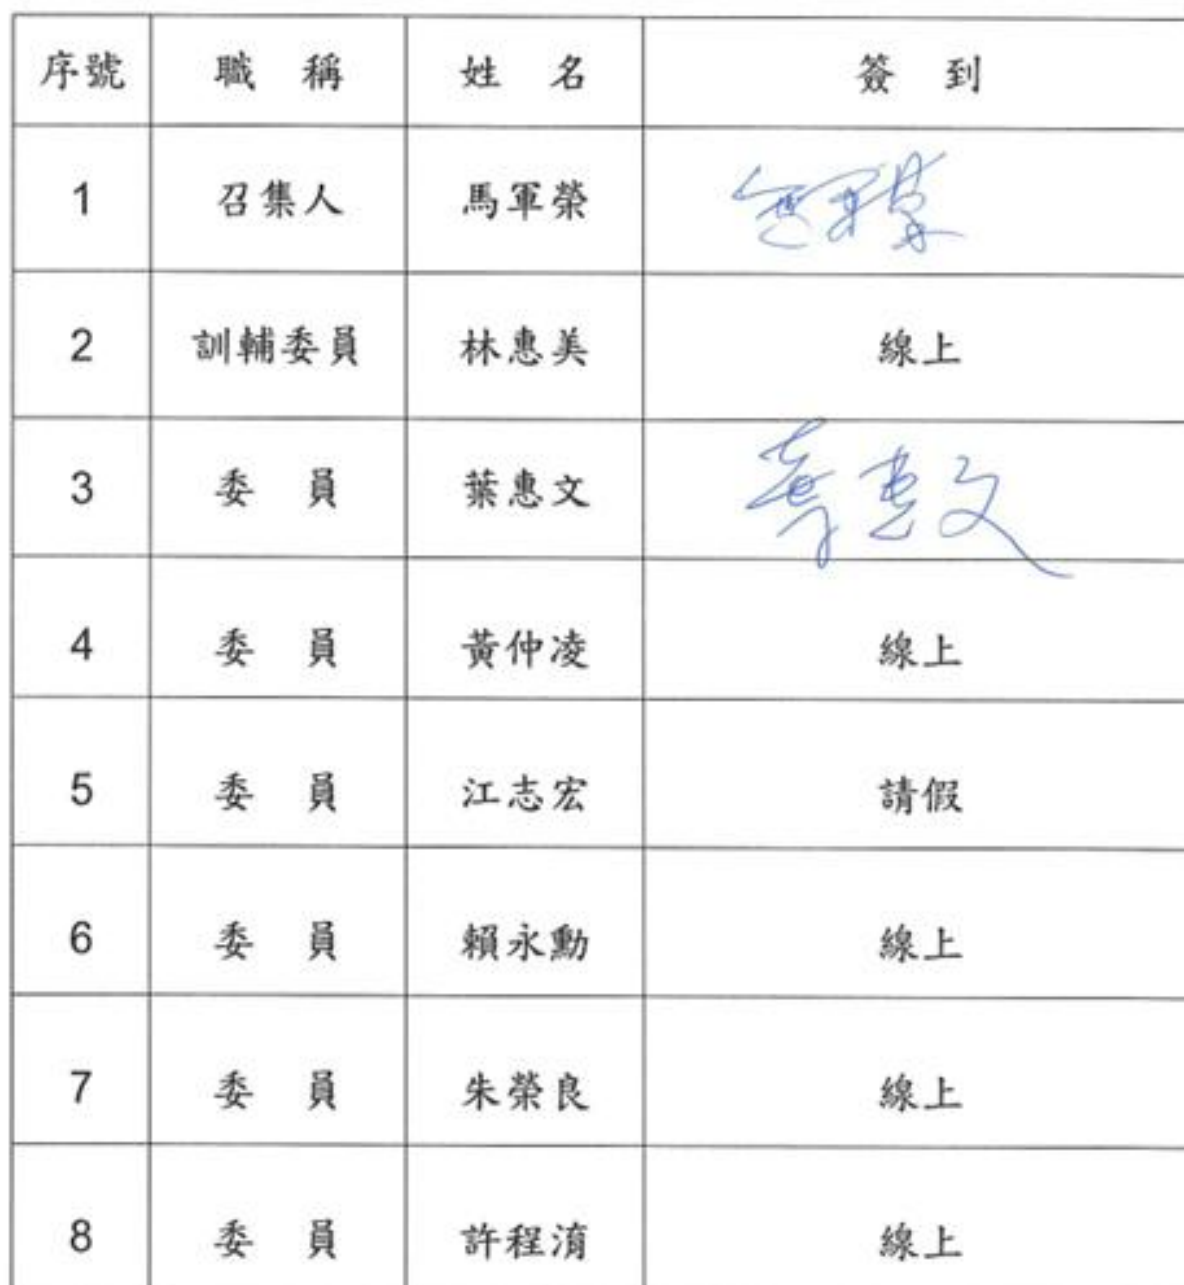 序號 職稱 姓名 簽到
1 召集人 馬軍榮
2 訓輔委員 林惠美 線上
3 委員 葉惠文 葉惠文
4 委員 黃仲凌 線上
5 委員 江志宏 請假
6 委員 賴永勳 線上
7 委員 朱榮良 線上
8 委員 許程淯 線上